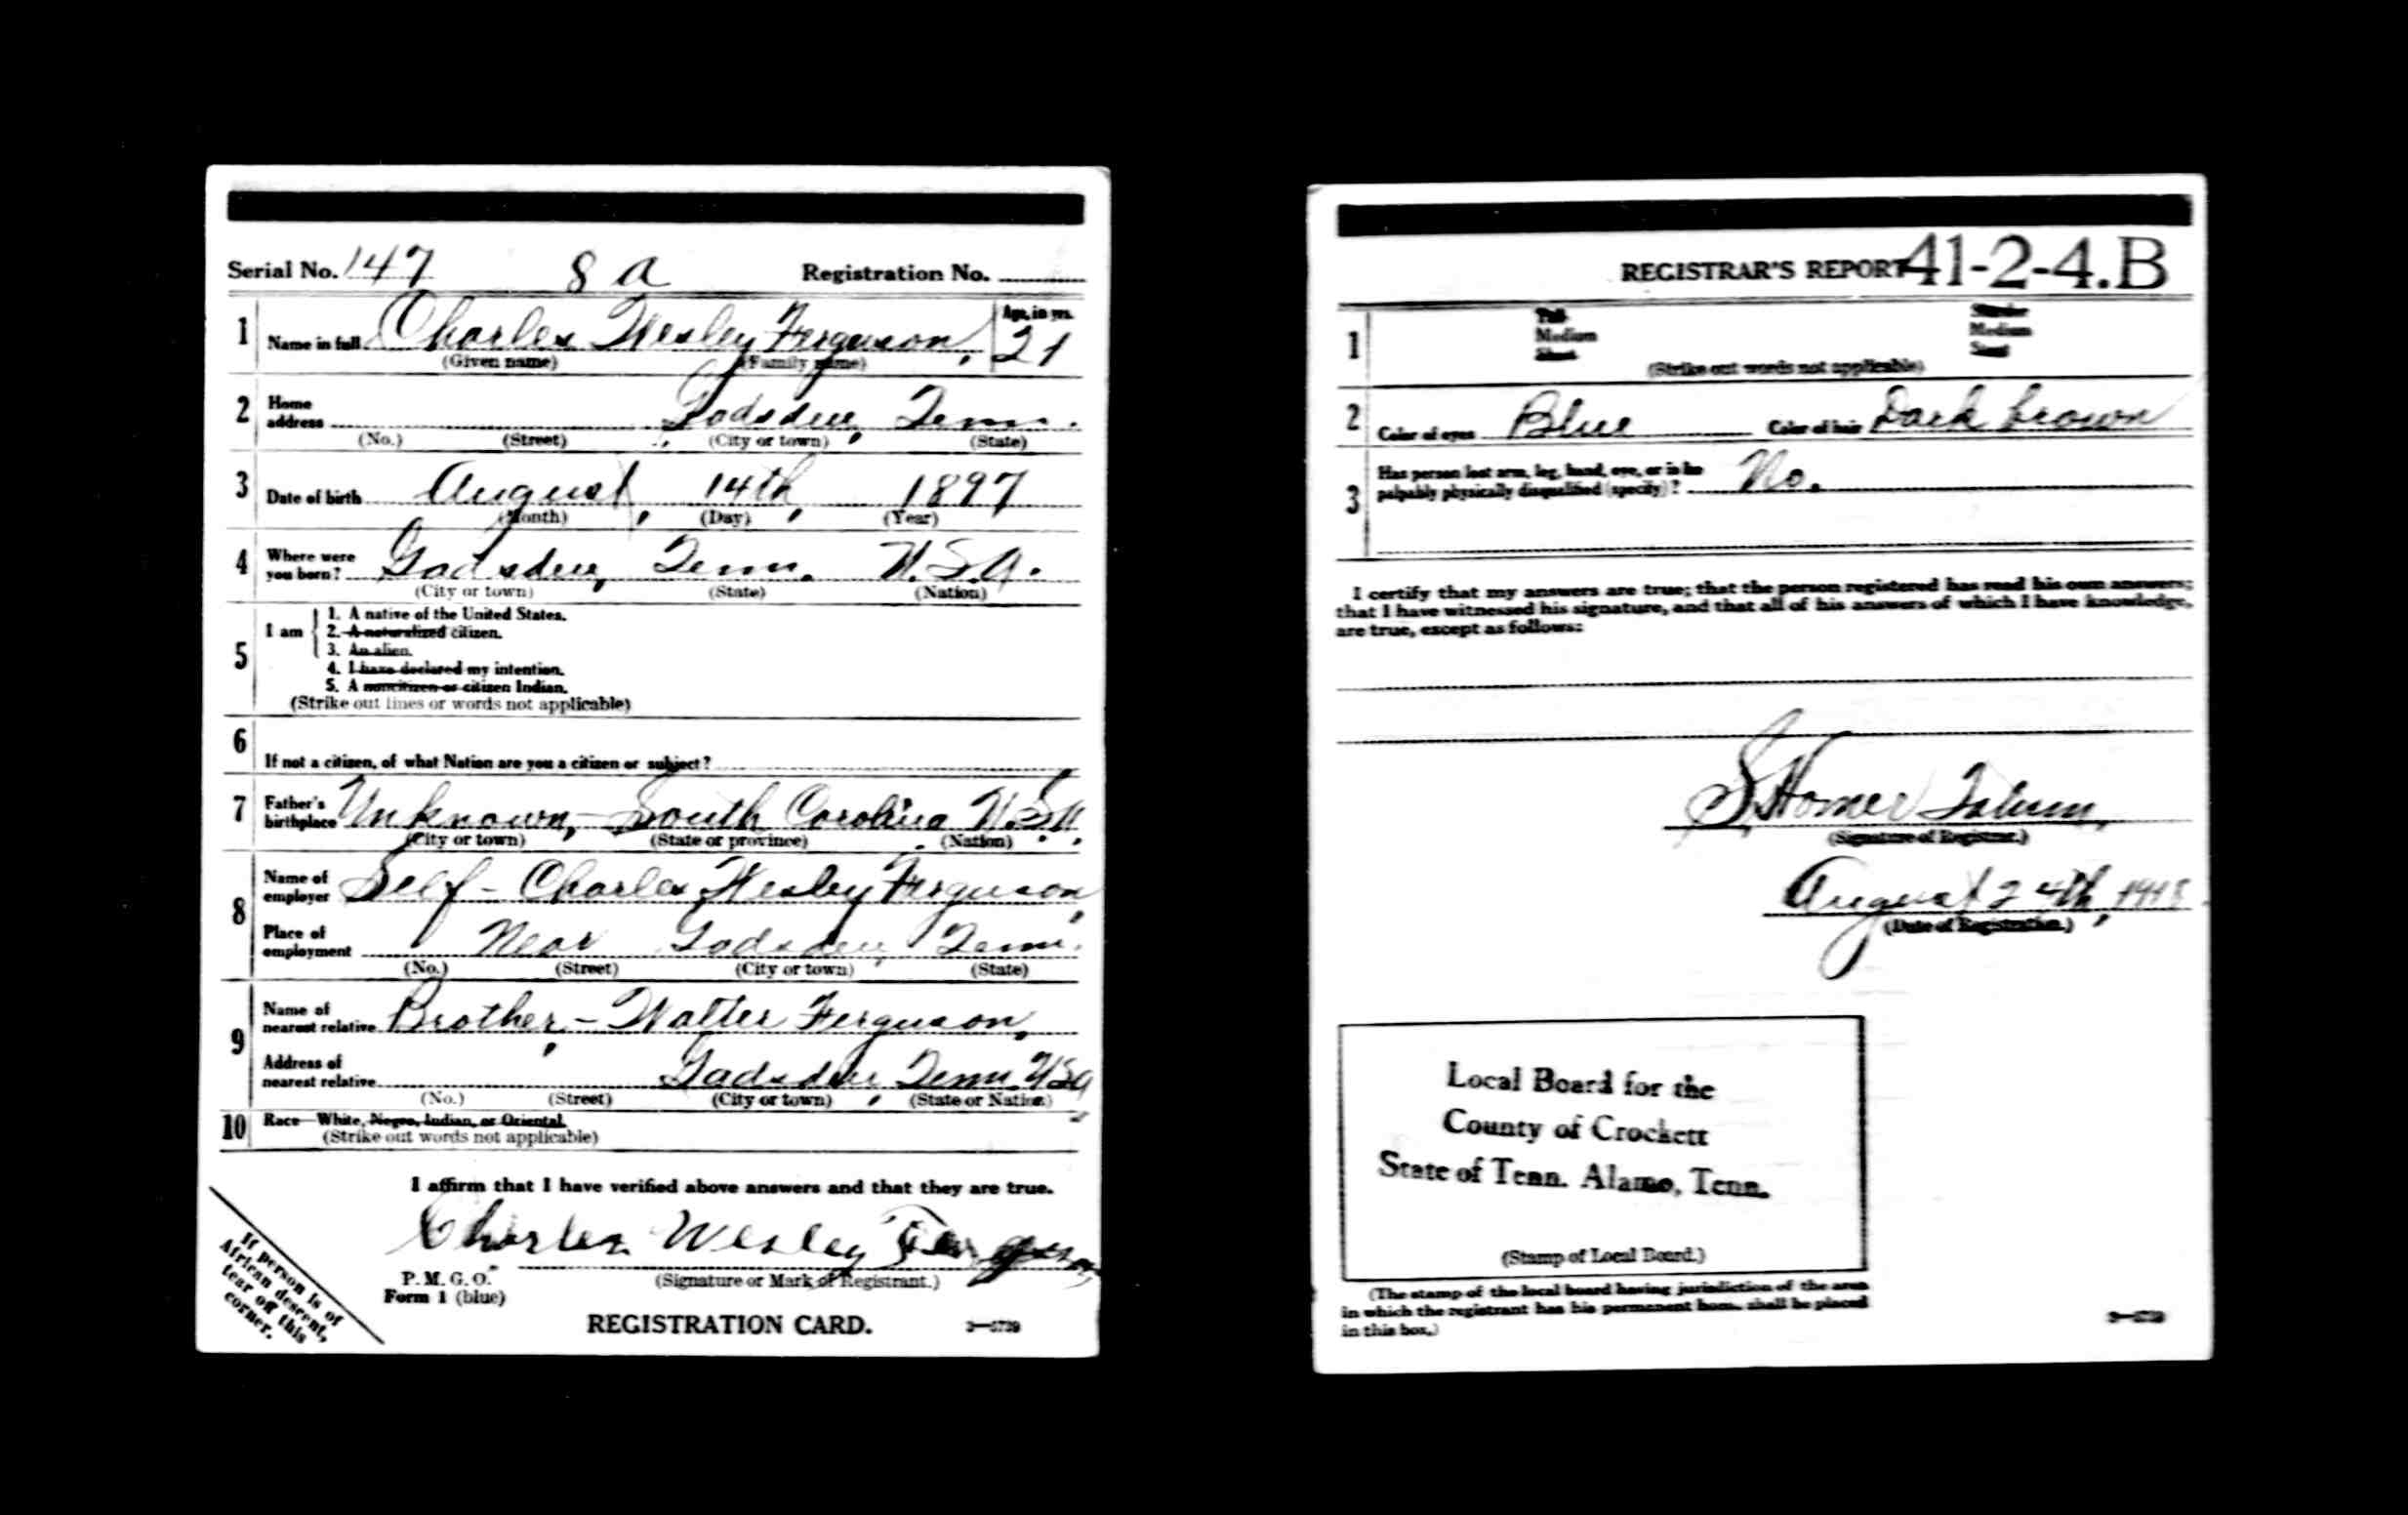 Serial No. 147 8 A Registration No.
1 Name in full Charles Wesley Ferguson, Age, in yrs. 21
(Given name) (Family name)
2 Home address Gadsden, Tenn.
(No.) (Street) (City or town) (State)
3 Date of birth August, 14th, 1897
(Month) (Day) (Year)
4 Where were you born? Gadsden, Tenn. U.S.A.
(City or town) (State) (Nation)
5 I am
1. A native of the United States.
2. A naturalized citizen.
3. An alien.
4. I have declared my intention.
5. A noncitizen or citizen Indian.
(Strike out lines or words not applicable)
6 If not a citizen, of what Nation are you a citizen or subject?
7 Father's birthplace Unknown, - South Carolina U.S.A.
(City or town) (State or province) (Nation)
8 Name of employer Self - Charles Wesley Ferguson,
Place of employment Near Gadsden, Tenn.
(No.) (Street) (City or town) (State)
9 Name of nearest relative Brother, - Walter Ferguson,
Address of nearest relative Gadsden, Tenn. USA
(No.) (Street) (City or town) (State or Nation)
10 Race—White, Negro, Indian, or Oriental.
(Strike out words not applicable)
I affirm that I have verified above answers and that they are true.
Charles Wesley Ferguson
P. M. G. O. (Signature or Mark of Registrant.)
Form 1 (blue)
REGISTRATION CARD. 3—5739
If person is of
African descent,
tear off this
corner.
REGISTRAR'S REPORT 41-2-4.B
1 Tall Slender
Medium Medium
Short Stout
(Strike out words not applicable)
2 Color of eyes Blue Color of hair Dark brown
3 Has person lost arm, leg, hand, eye, or is he
palpably physically disqualified (specify)? No.
I certify that my answers are true; that the person registered has read his own answers;
that I have witnessed his signature, and that all of his answers of which I have knowledge,
are true, except as follows:
S. Homer Tatum,
(Signature of Registrar.)
August 24th, 1918
(Date of Registration.)
Local Board for the
County of Crockett
State of Tenn. Alamo, Tenn.
(Stamp of Local Board.)
(The stamp of the local board having jurisdiction of the area
in which the registrant has his permanent home shall be placed
in this box.)
3—5739